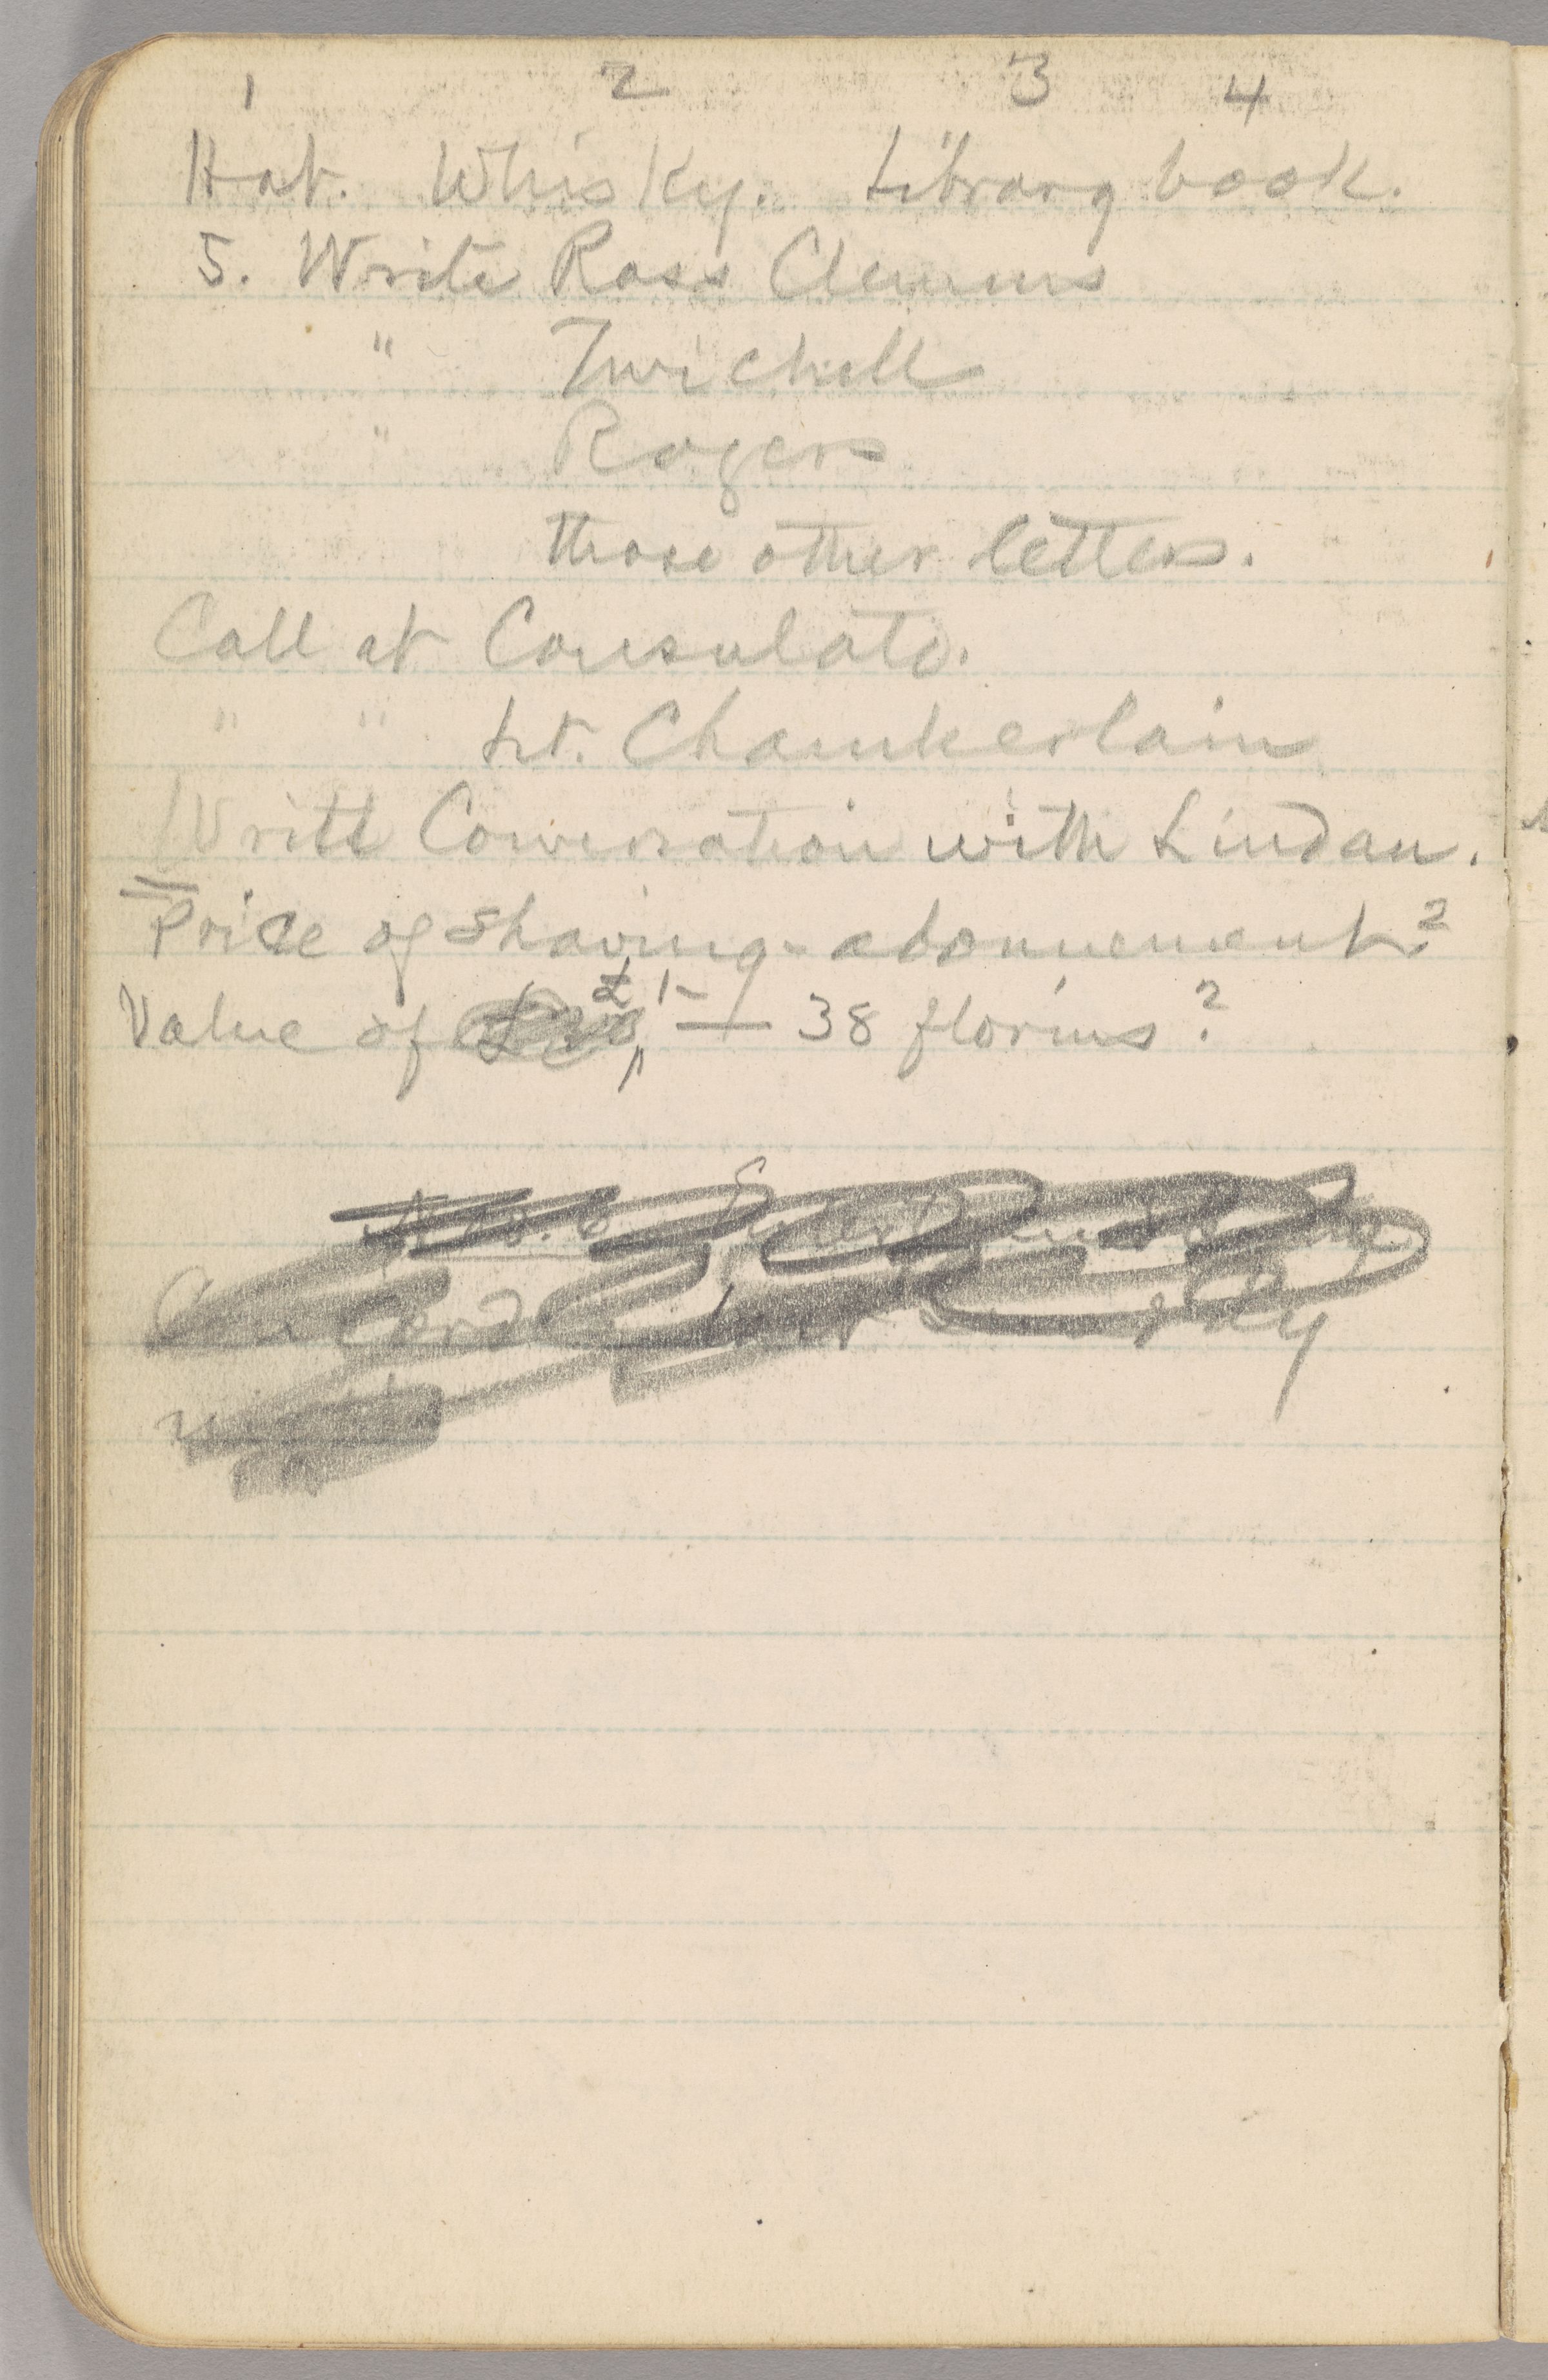 1 2 3 4
Hat. Whisky. Library book.
5. Write Ross Clemens
" Twichell
" Rogers
those other letters.
Call at Consulate.
" " Lt. Chamberlain
Write Conversation with Lindau.
Price of shaving-abonnement?
£1-
Value of — 38 florins?